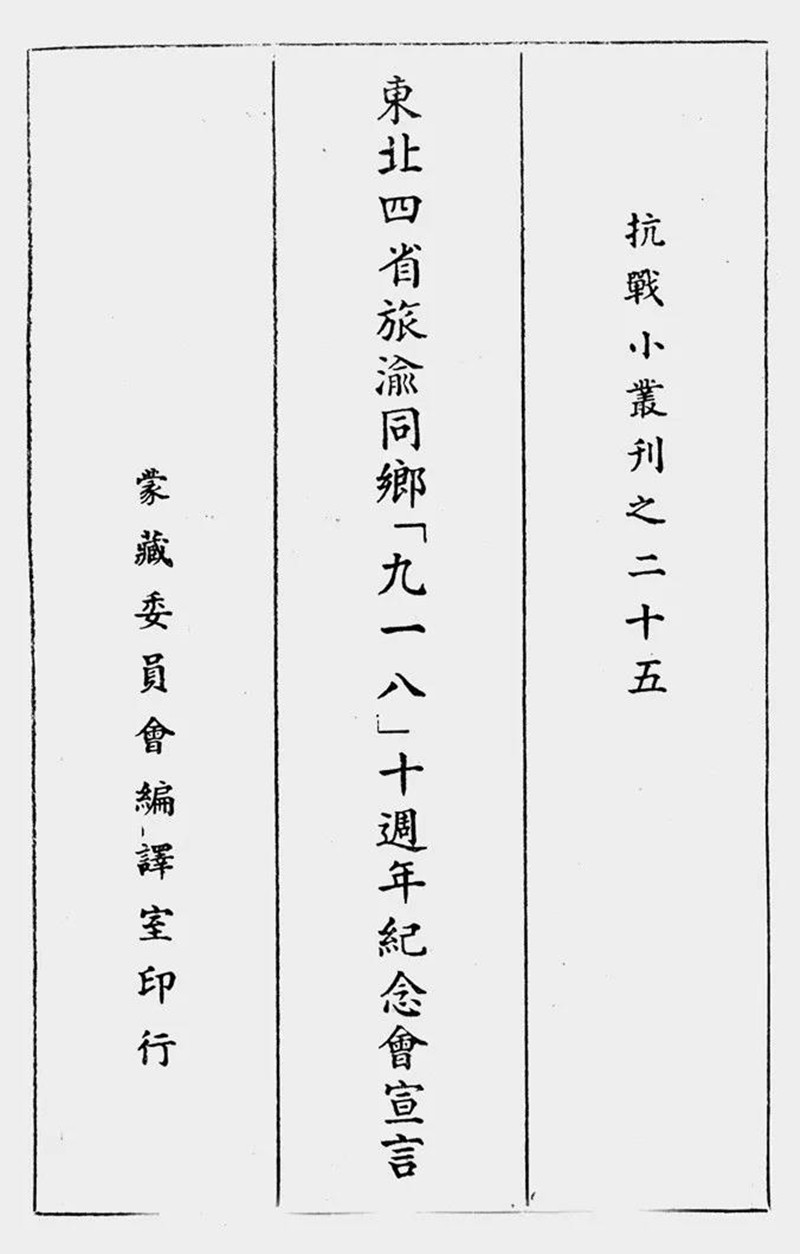 抗戰小叢刊之二十五
東北四省旅渝同鄉「九一八」十週年紀念會宣言
蒙藏委員會編譯室印行